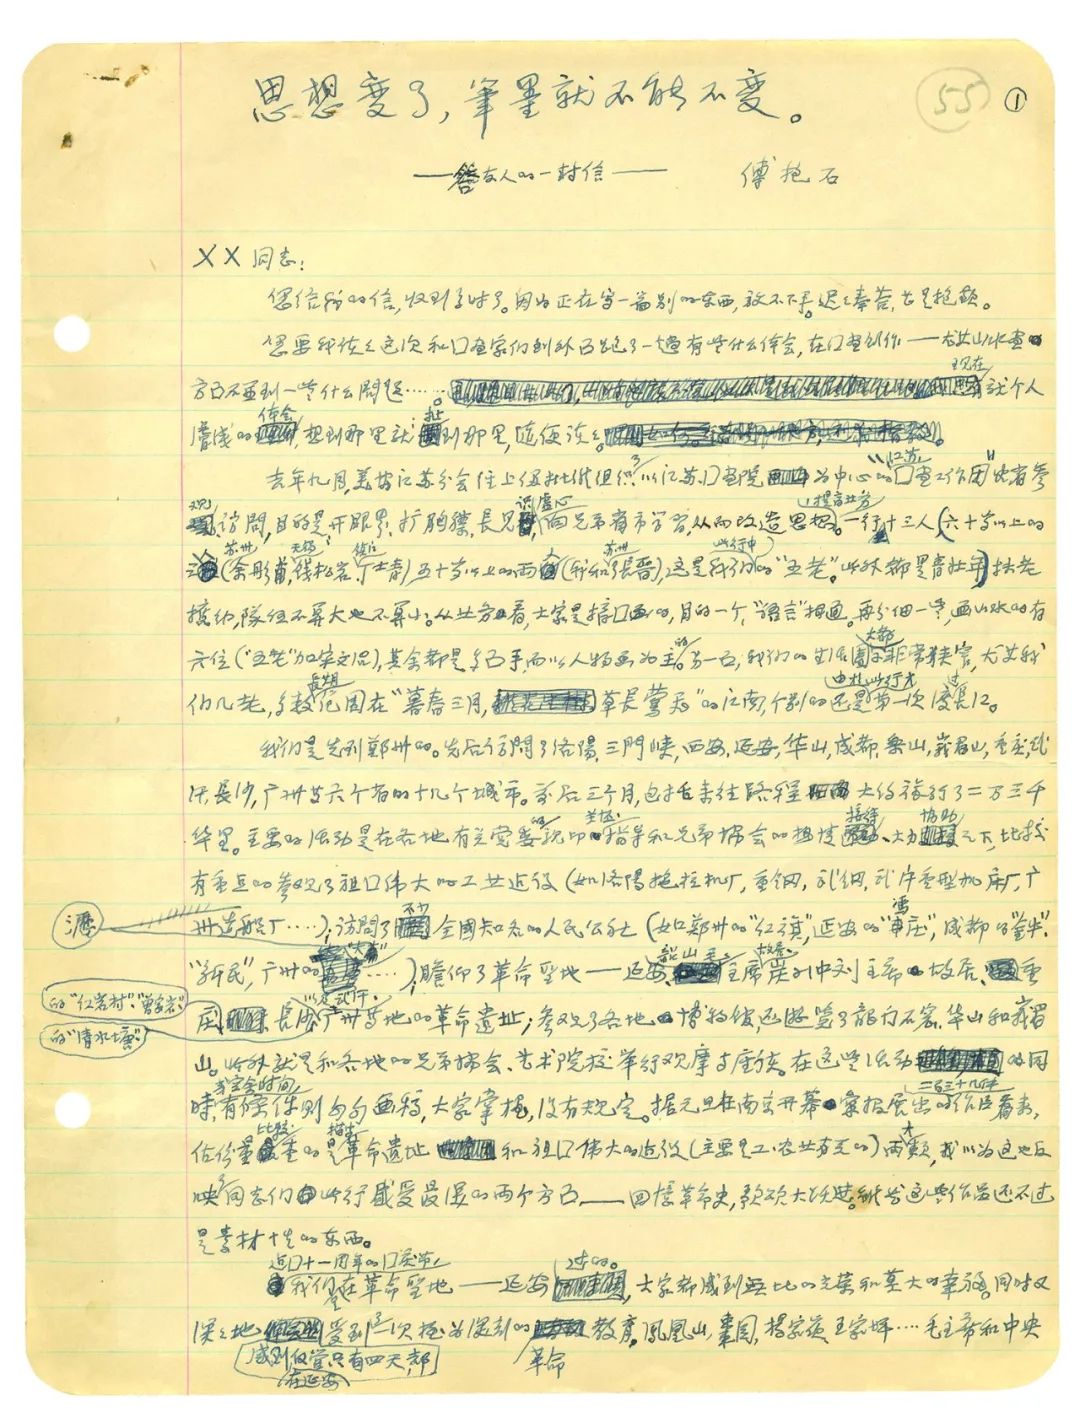 思想变了，筆墨就不能不变。
55 ①
——答友人的一封信—— 傅抱石
XX同志：
您给我的信，收到多时了。因为正在写一篇别的东西，放不下手。迟迟奉答，甚是抱歉。
您要我谈谈这次和口画家们到外面跑了一趟有些什么体会，在口画创作——尤其山水画
方面不遇到一些什么問題…… 现在 就个人
膚浅的体会，想到那里就扯到那里，随便谈谈。
去年九月，美协江苏分会 组织了以江苏口画院为中心的“江苏口画工作团”出省参
观、訪問，目的是开眼界，扩胸襟，長见識，虚心向兄弟省市学習，提高业务，从而改造思想。一行十三人（六十岁以上的
三（苏州余彤甫、无锡钱松岩、镇江丁士青）五十岁以上的两人（我和苏州張晋），这是我们此行中的“五老”。此外都是青壮年）扶老
攜幼，隊伍不算大也不算小。从业务看，大家是搞口画的，目的一个，“語言”相通。再分细一些，画山水的有
六位（“五老”加宋文治），其余都是多面手而以人物画为主的。另一面，我们的生活圈子大都非常狭窄，尤其我
们几老，多数長期范围在“暮春三月，草長鶯飞”的江南，个别的还是由于此行才第一次渡过長江。
我们是先到鄭州的。先后訪問了洛陽，三門峡，西安，延安，华山，成都，樂山，峨眉山，重庆，武
汉，長沙，广州等六个省的十几个城市。前后三个月，包括来往路程 大约旅行了二万三千
华里。主要的活动是在各地有关党委的親切关怀、指导和兄弟协会的热情接待、大力协助之下，比较
有重点的参观了祖口伟大的工业建设（如洛陽拖拉机厂，重钢，武钢，武汉重型机床厂，广
州造船厂……）；訪問了不少全國知名的人民公社（如郑州的“红旗”，延安的“枣庄”，成都的“金牛”、
“新民”，广州的……）；瞻仰了革命聖地——延安、韶山毛主席故居和 刘主席故居、重
庆的“红岩村”、“曾家岩” 長沙 以及武汉、广州等地的革命遺址；参观了各地博物館，还遊览了龍門石窟、华山和峨眉
山。此外就是和各地的兄弟协会、艺术院校举行观摩与座谈。在这些活动 的同
時，有条件則勾勾画稿，大家掌握，没有规定。据元旦在南京开幕 汇报展出的二百三十几件作品看来，
佔份量比较重的是描寫革命遺址 和祖口伟大的建设（主要是工、农业方面的）两大類，我以为这也反
映了同志们此行感受最深的两个方面——回憶革命史，歌颂大跃进。虽然这些作品还不过
是素材性的东西。
建口十一周年的口庆节，我们是在革命聖地——延安过的。大家都感到無比的光荣和莫大的幸福。同时又
深深地感到，仅管在延安只有四天，都受到一次極为深刻的革命教育。凤凰山，棗园，楊家嶺，王家坪……毛主席和中央